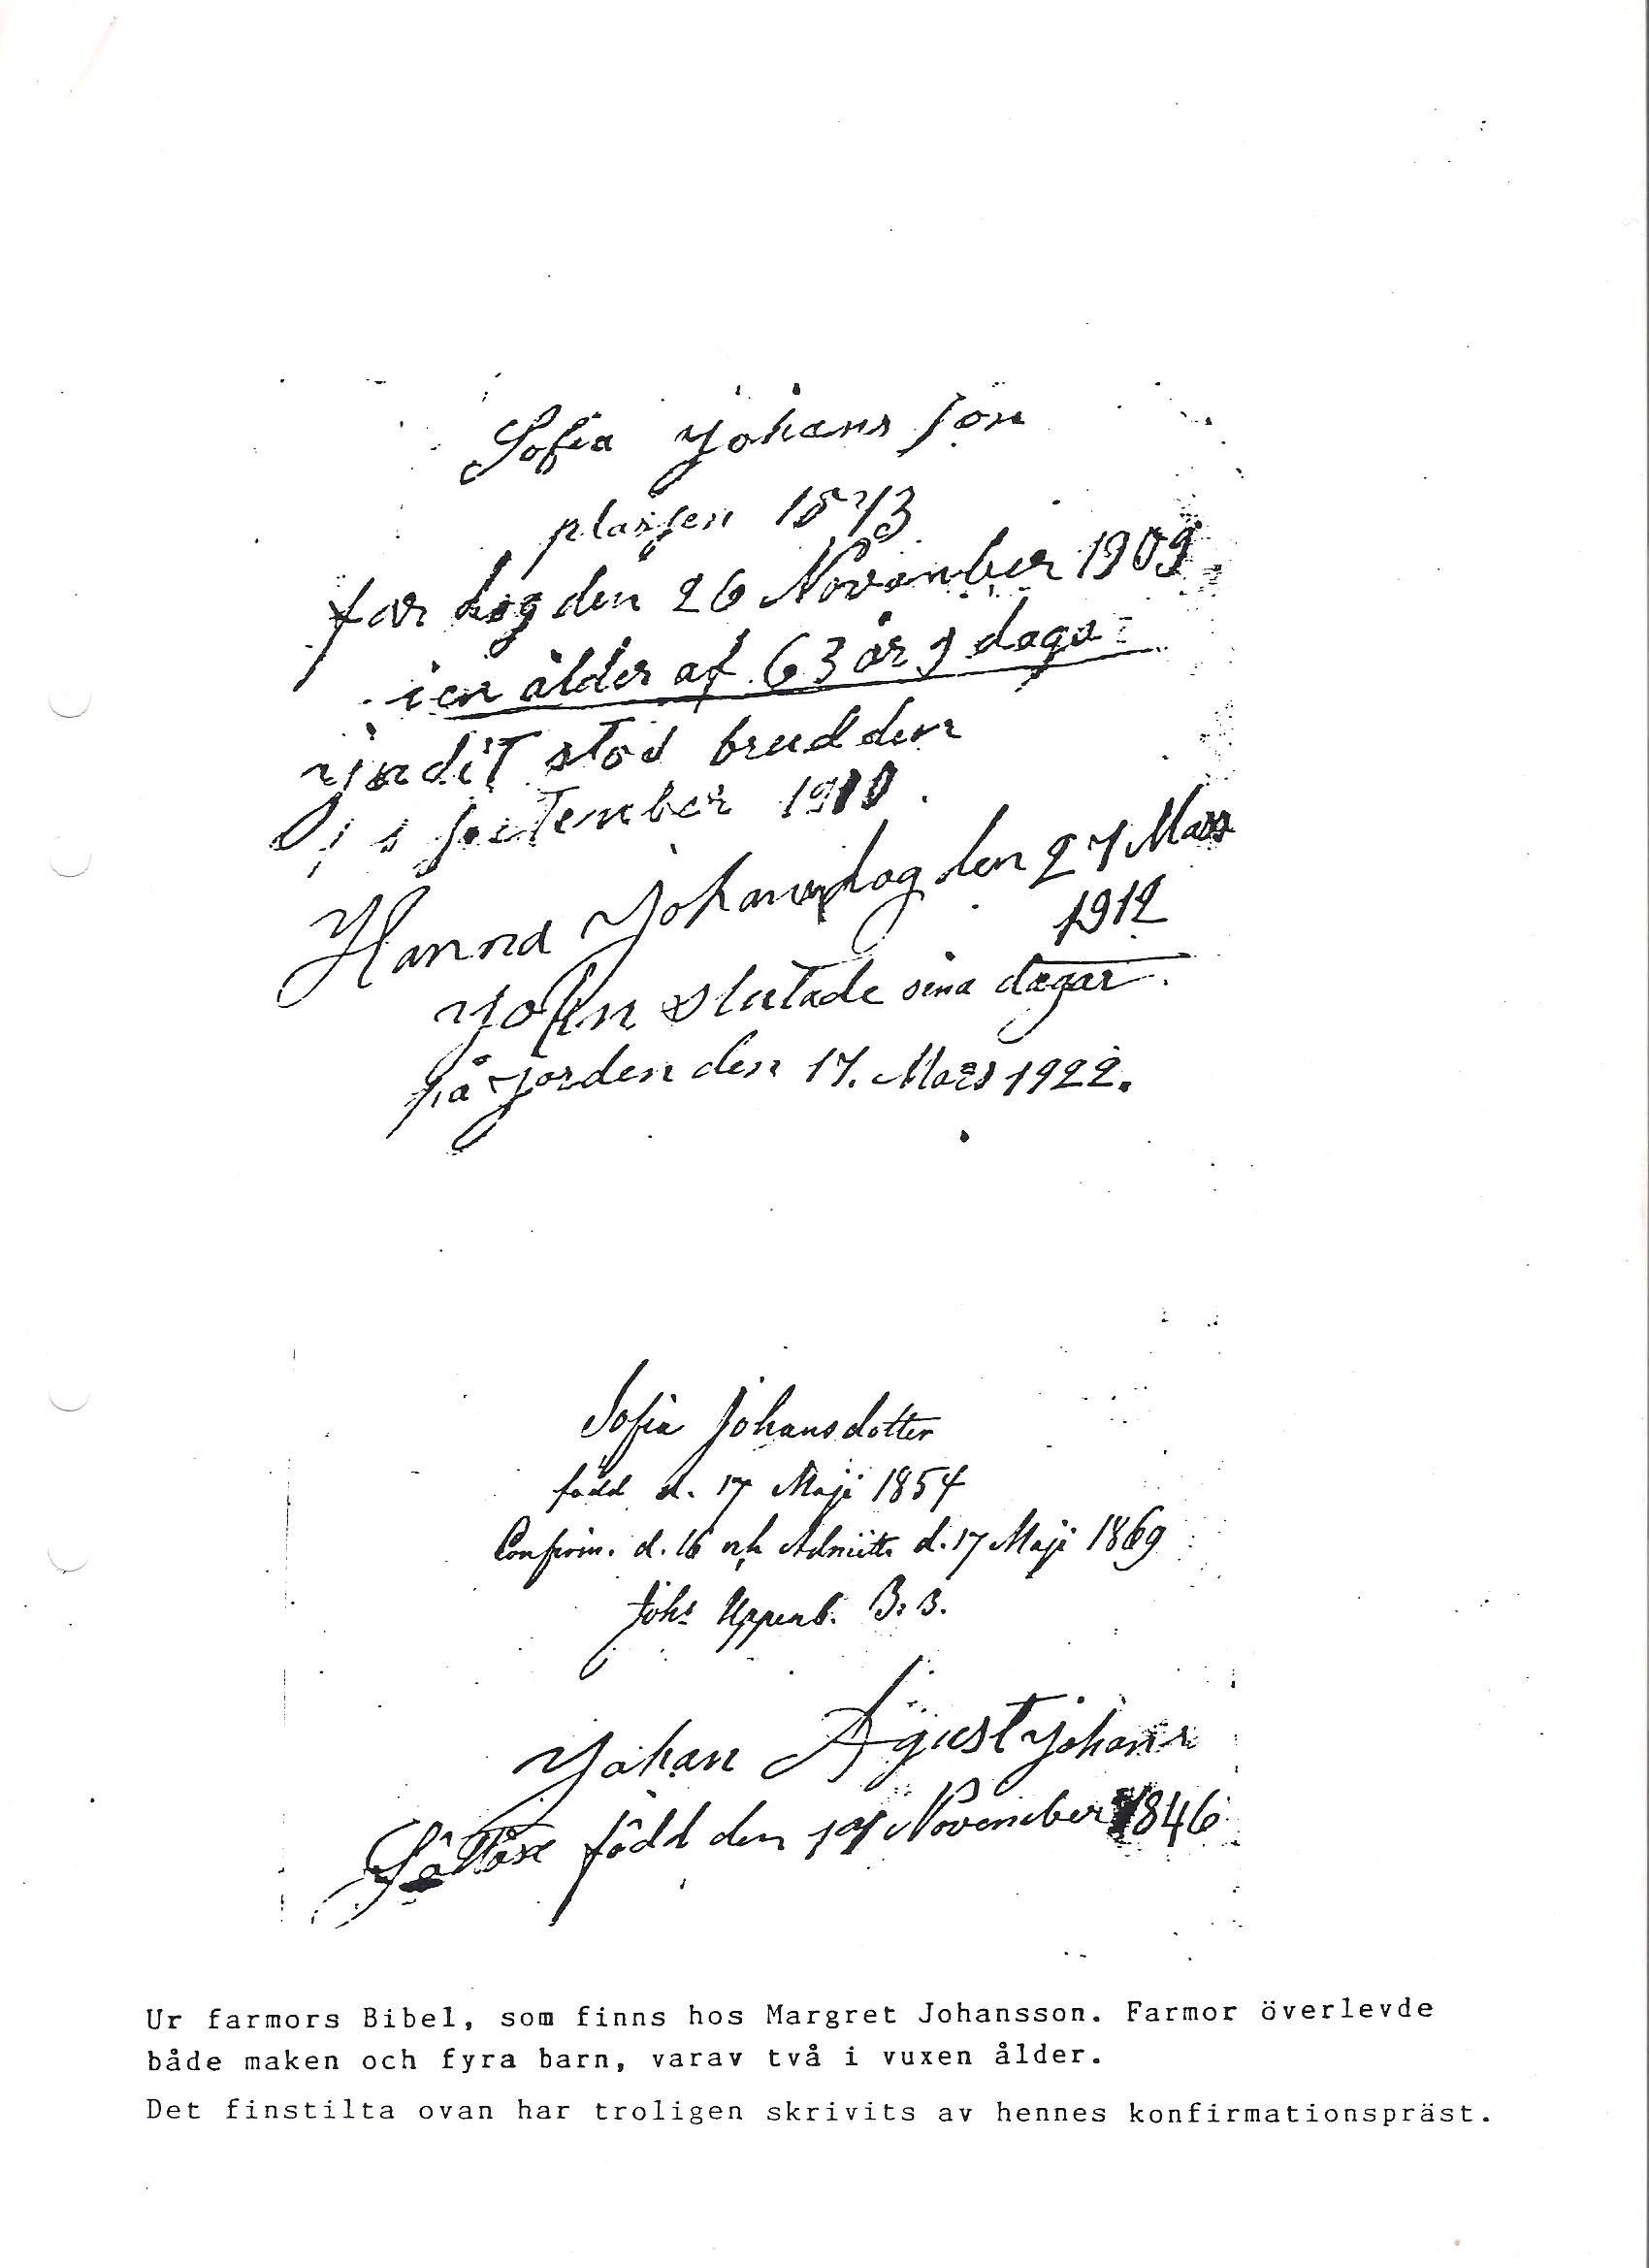 Sofia Johans son
plassen 1873
far dog den 26 November 1909
i en ålder af 63 år 9 daga
stod brud den
september 1910
Hanna Johans dog den 27 Mars
1912
John slutade sina dagar
på jorden den 17. Mars 1922.
Sofia Johansdotter
född d. 17 Maji 1854
Confirm. d. 16 och Admitt. d. 17 Maji 1869
Johs Uppenb. 3: 3.
Johan Agust Johans
född den 17 November 1846
Ur farmors Bibel, som finns hos Margret Johansson. Farmor överlevde
både maken och fyra barn, varav två i vuxen ålder.
Det finstilta ovan har troligen skrivits av hennes konfirmationspräst.